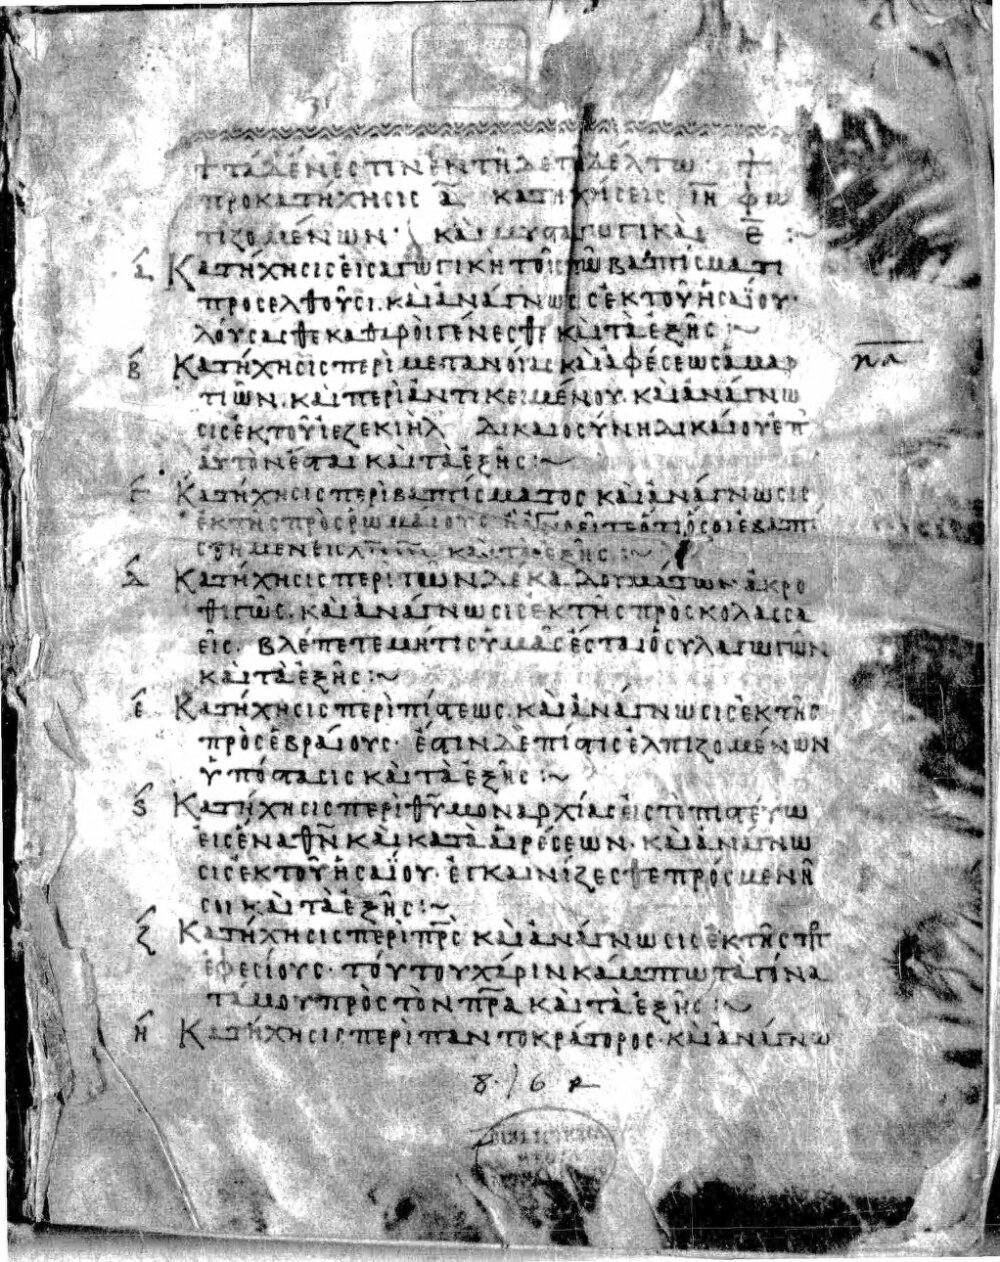 + τάδε ἔνεστιν ἐν τῆδε τῆ δέλτω · +
προκατήχησις α̅ κατηχήσεις ι̅η̅ φω
τιζομένων · καὶ μυσταγωγικαὶ ε̅ :~
α Κατήχησις εἰσαγωγικὴ τοῖς τῶ βαπτίσματι
προσελθοῦσι · καὶ ἀνάγνωσις ἐκ τοῦ ἡσαΐου ·
λούσασθε καθαροὶ γένεσθε καὶ τὰ ἑξῆς :~
β Κατήχησις περὶ μετανοίας καὶ ἀφέσεως ἁμαρ
τιῶν · καὶ περὶ ἀντικειμένου · καὶ ἀνάγνω
σις ἐκ τοῦ ἰεζεκιὴλ δικαιοσύνη δικαίου ἐπ
αὐτὸν ἔσται καὶ τὰ ἑξῆς :~
γ Κατήχησις περὶ βαπτίσματος καὶ ἀνάγνωσις
ἐκ τῆς πρὸς ῥωμαίους
καὶ τὰ ἑξῆς :~
δ Κατήχησις περὶ τῶν δέκα δογμάτων · ἀκρο
θιγῶς · καὶ ἀνάγνωσις ἐκ τῆς πρὸς κολασσα
εῖς · βλέπετε μήτις ὑμᾶς ἔσται ὁ συλαγωγῶν
καὶ τὰ ἑξῆς :~
ε Κατήχησις περὶ πίστεως · καὶ ἀνάγνωσις ἐκ τῆς
πρὸς ἑβραίους · ἔστιν δε πίστις ἐλπιζομένων
ὑπόστασις καὶ τὰ ἑξῆς :~
ϛ Κατήχησις περὶ θ̅υ̅ μοναρχίας εἰς τὸ πιστεύω
εἰς ἕνα θ̅ν̅ καὶ κατὰ αἱρέσεων · καὶ ἀνάγνω
σις ἐκ τοῦ ἡσαΐου · ἐγκαινίζεσθε πρός με νῆ
σοι καὶ τὰ ἑξῆς :~
ζ Κατήχησις περὶ π̅ρ̅ς̅ καὶ ἀνάγνωσις ἐκ τῆς πρ
ἐφεσίους · τούτου χάριν κάμπτω τὰ γόνα
τά μου πρὸς τὸν π̅ρ̅α̅ καὶ τὰ ἑξῆς :~
η Κατήχησις περὶ παντοκράτορος · καὶ ἀνάγνω